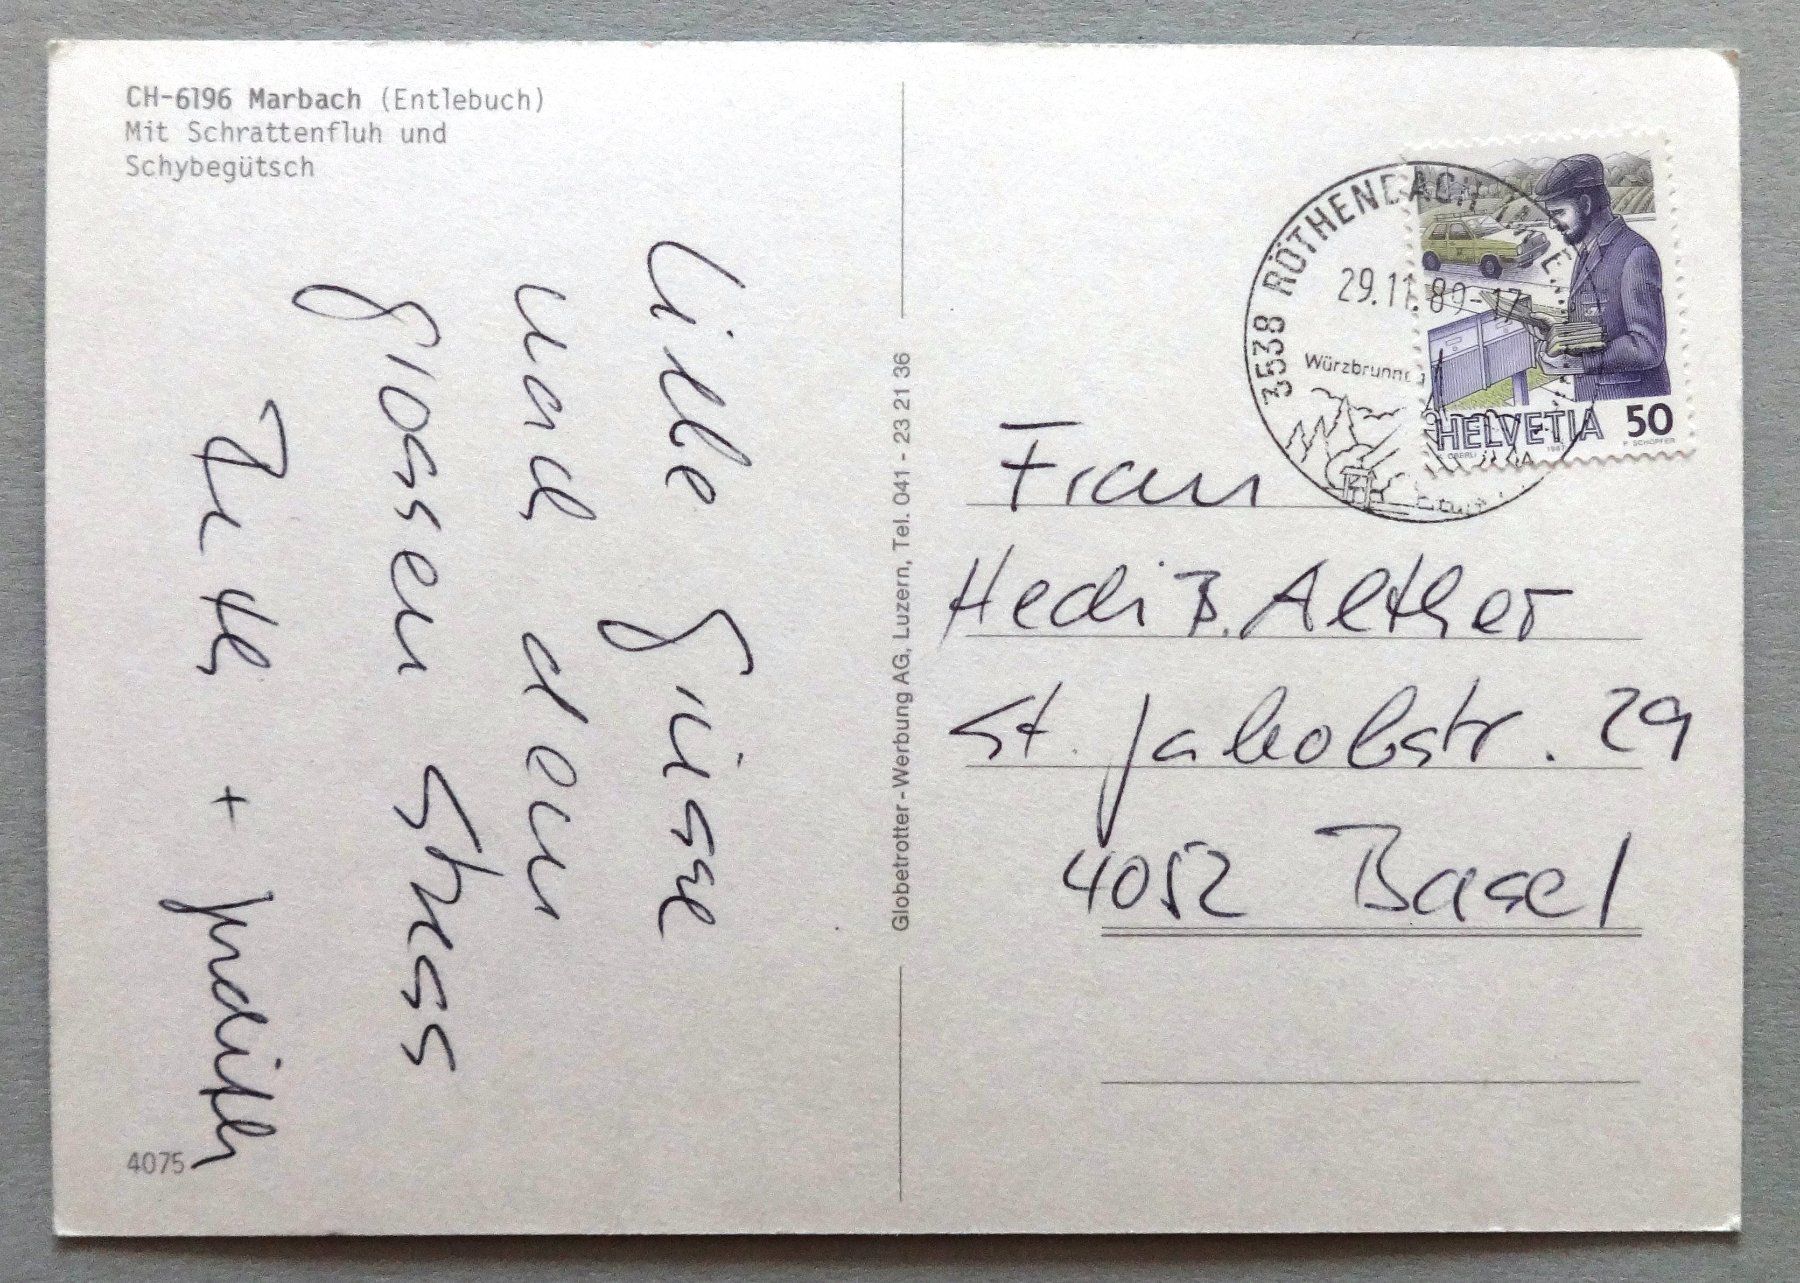 CH-6196 Marbach (Entlebuch)
Mit Schrattenfluh und
Schybegütsch
liebe Grüsse
nach dem
grossen Stress
Ruth + Judith
4075
Globetrotter-Werbung AG, Luzern, Tel. 041 - 23 21 36
3538 RÖTHENBACH I.E.
29.11.89-17
Würzbrunnen
HELVETIA 50
OBERLI 1987 P. SCHOPFER
Frau
Hedi B. Alther
St. Jakobstr. 29
4052 Basel